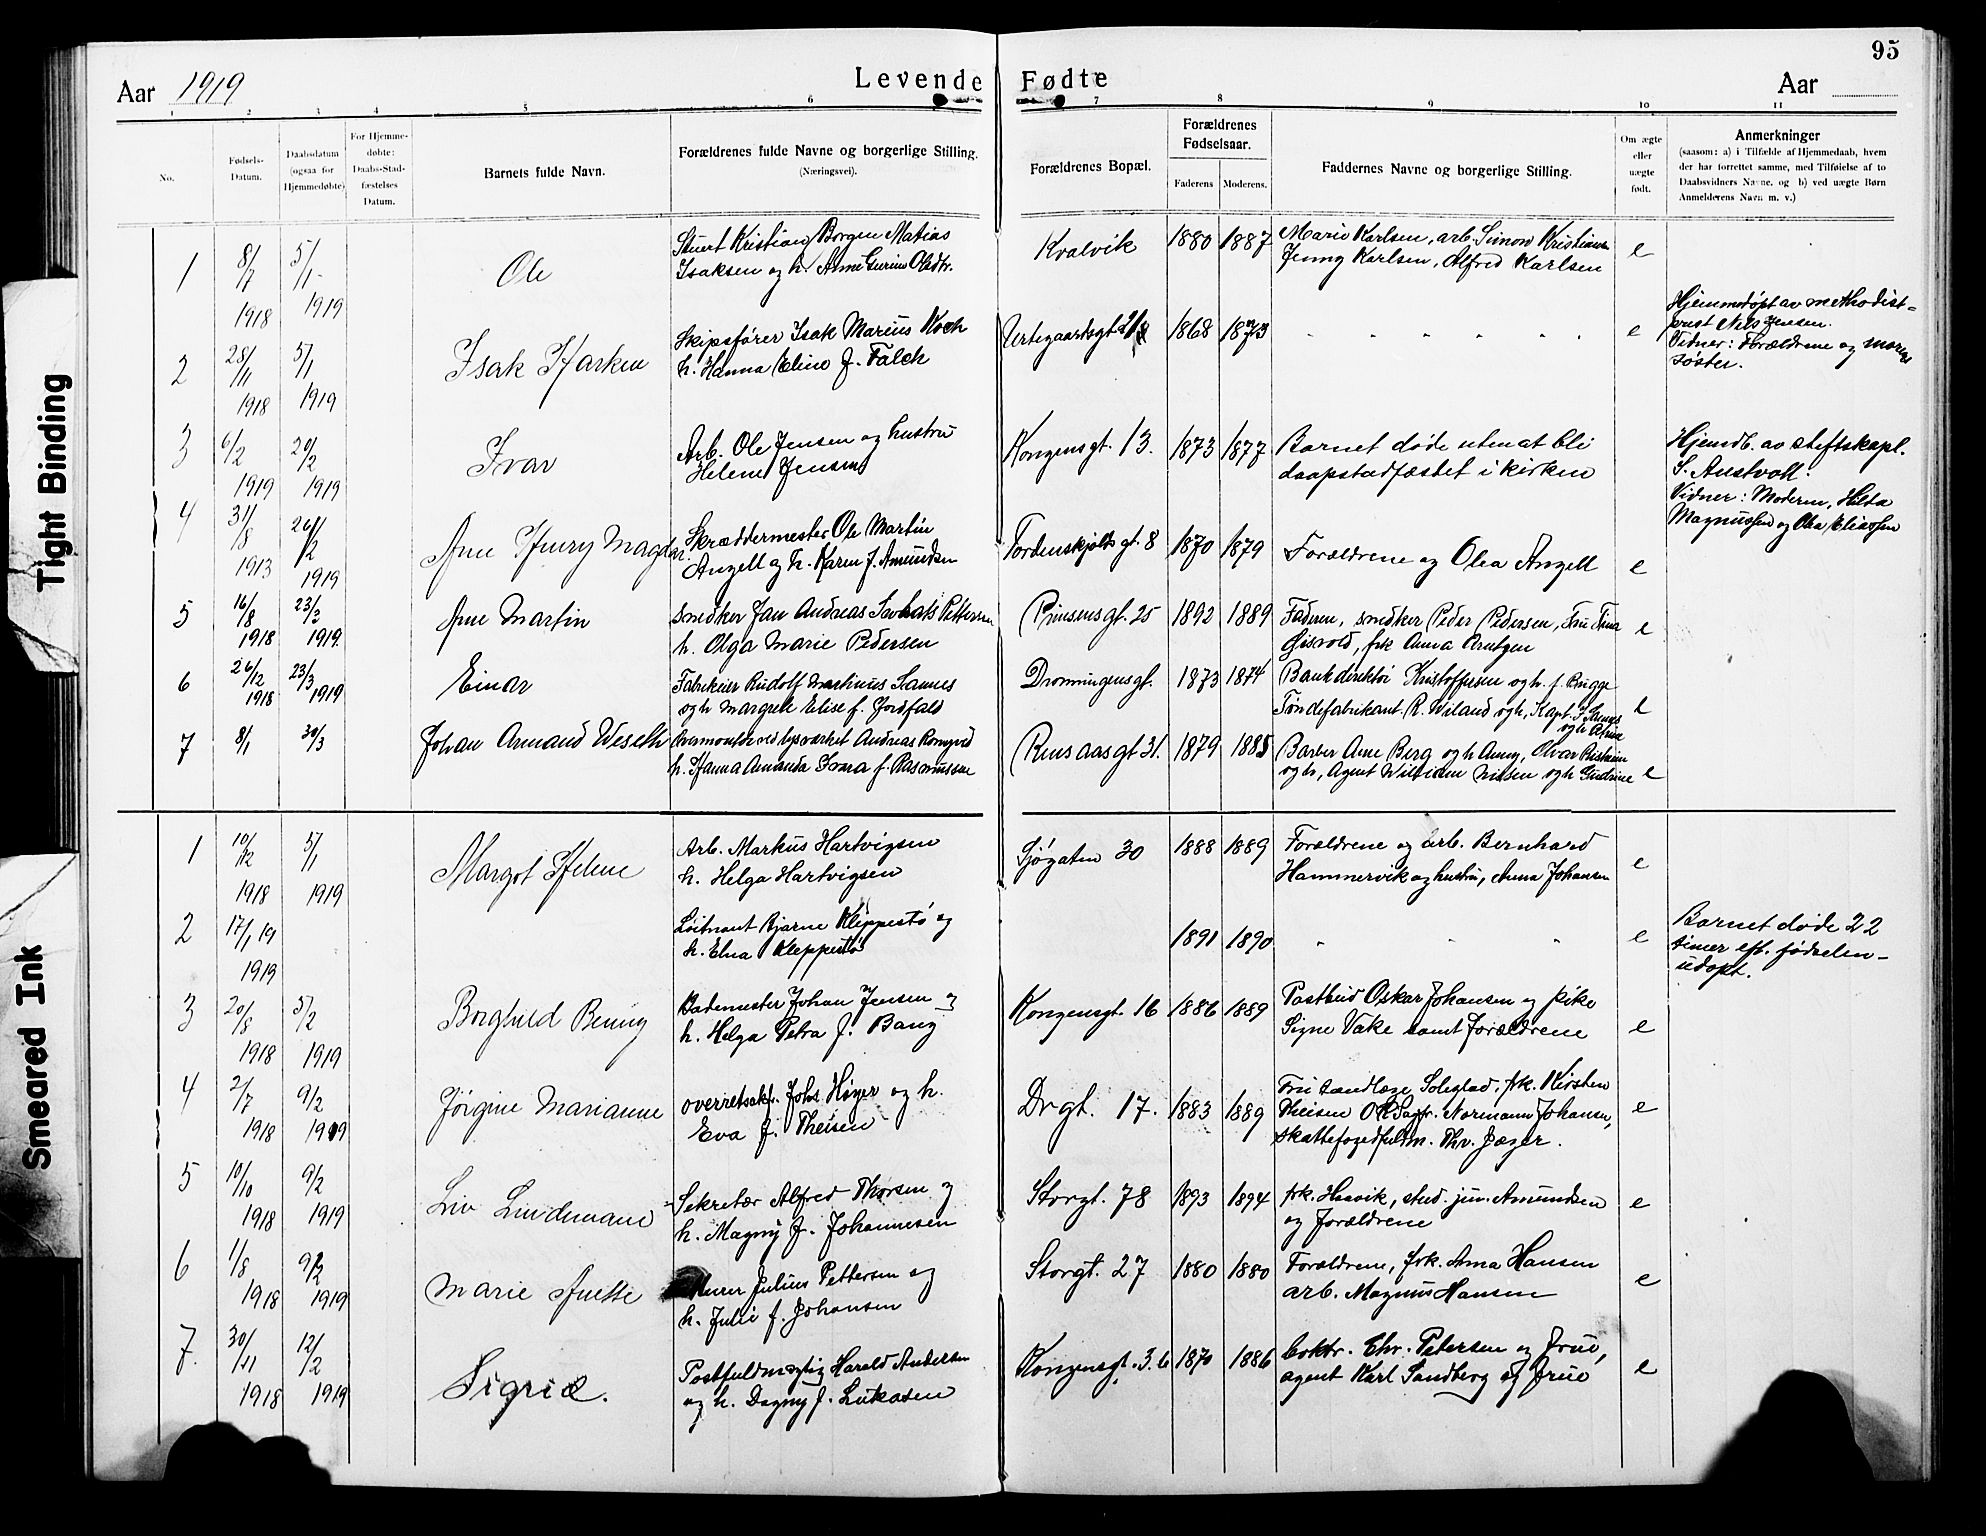 95
Aar 1919 Levende Fødte Aar
1 2 3 4 5 6 7 8 9 10 11
No.
Fødsels-
Datum.
Daabsdatum
(ogsaa for
Hjemmedøbte)
For Hjemme-
døbte:
Daabs-Stad-
fæstelses
Datum.
Barnets fulde Navn.
Forældrenes fulde Navne og borgerlige Stilling.
(Næringsvei).
Forældrenes Bopæl.
Forældrenes
Fødselsaar.
Faderens. Moderens.
Faddernes Navne og borgerlige Stilling.
Om ægte
eller
uægte
født.
Anmerkninger
(saasom: a) i Tilfælde af Hjemmedaab, hvem
der har forrettet samme, med Tilføielse af to
Daabsvidners Navne. og b) ved uægte Børn
Anmelderens Navn m. v.)
1 8/7 1918 5/1 1919 Ole
Stuert Kristian Borgen Matias
Isaksen og h. Anne Gurine Olsdtr.
Kvalvik 1880 1887
Marie Karlsen, arb. Simon
Jenny Karlsen, Alfred Karlsen
e
2 28/11 1918 5/1 1919 Isak
Skipsfører Isak Marius Koch
h. Hanna Eline f. Falch
1868 1873
" " " "
e
Hjemmedøpt av methodist-
prest Nels Jensen.
Vidner: Forældrene og morens
søster.
3 6/2 1919 20/2 1919 Ivar
Arb. Ole Jensen og hustru
Helene Jensen
Kongensgt. 13. 1873 1877
Barnet døde uten at bli
daapstadfæstet i kirken
Hjemdb. av stiftskapl.
S. Austvoll:
Vidner: Moderen,
Magnussen og Olea Eliassen
4 31/8 1913 26/2 1919
Skræddermester Ole Martin
Angell og h. Karen f. Amundsen
Tordenskjoldsgt. 8 1870 1879
Forældrene og Olea Angell
e
5 16/8 1918 23/2 1919. Arne Martin
Snedker Jan Andreas Pettersen
h. Olga Marie Pedersen
Prinsensgt. 25 1892 1889
Faderen, snedker Peder Pedersen, Fru
frk Anna Arntzen
e
6 26/12 1918 23/3 1919 Einar
Fabrikeier Rudolf Martinus Sannes
og h Margrete Elise f. Jordfald
Dronningensgt. 1873 1874
Bankdirektør Kristoffersen og h. f. Brugge
Tøndefabrikant R. Wiland og h, Kapt.
e
7 8/1 30/3 Johan Armand Weseth
Overmontør ved lysverket Andreas
h. Hanna Amanda f. Rasmussen
31. 1879 1885
Barber Arne Berg og h
og h, Agent William Nilsen og h Gudrine
e
1 10/12 1918 5/1 1919 Margot Helene
Arb. Markus Hartvigsen
h. Helga Hartvigsen
Sjøgaten 30 1888 1889
Forældrene og arb. Bernhard
Hammervik og hustru, Anna Johansen
e
2 17/1 19 1919
Løitnant Bjarne Kleppestø og
h. Elna Kleppestø
1891 1890
" " "
e
Barnet døde 22
timer eft. fødselen -
udøpt.
3 20/8 1918 5/2 1919 Borghild Benny
Bademester Johan Jensen og
h. Helga Petra f. Bang
Kongensgt. 16 1886 1889
Postbud Oskar Johansen og pike
Signe Vake samt forældrene
e
4 2/7 1918 9/2 1919 Jørgine Marianne
overretsakf. Johs Høyer og h.
Eva f. Theisen
Drgt. 17. 1883 1889
Fru tandlæge Solestad, frk. Kirsten
Theisen O.R.Sagfr. Normann Johansen,
skattefogedfuldm. Thv. Jæger.
e
5 10/10 1918 9/2 1919 Liv Lindemann
Sekretær Alfred Thorsen og
h. Magny f. Johannesen
Storgt. 78 1893 1894
frk. Haavik, stud. jur. Amundsen
og forældrene
e
6 1/8 1918 9/2 1919 Marie Anette
Murer Julius Pettersen og
h. Julie f. Johansen
Storgt. 27 1880 1880
Forældrene, frk. Anna Hansen
arb. Magnus Hansen
e
7 30/11 1918 12/2 1919 Sigrid.
Postfuldmægtig Harald Andersen
og h. Dagny f. Lukasen
Kongensgt. 36 1870 1886
boktr. Chr. Petersen og frue,
agent Karl Sandberg og frue
e
Tight Binding
Smeared Ink